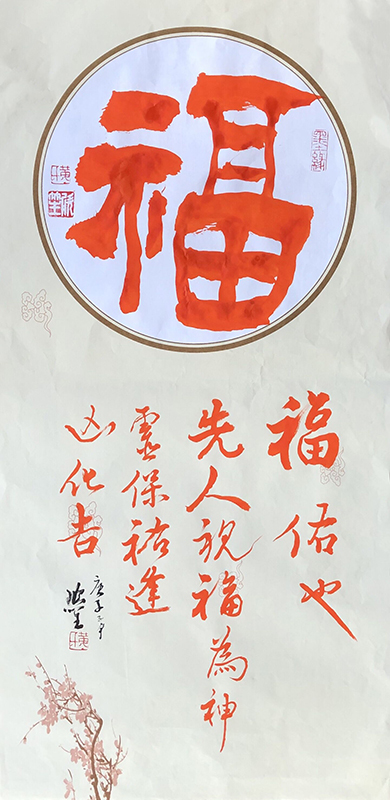 福
福佑也
先人祝福為神
靈保祐逢
凶化吉
庚子